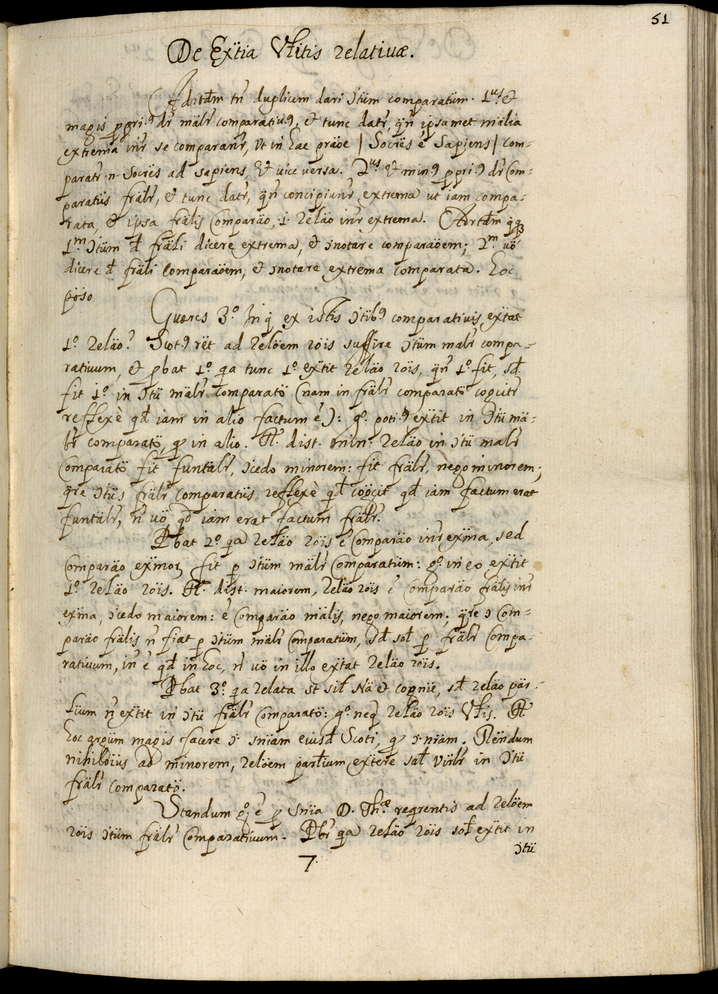 51
De Exꝉtia Vꝉitis relatiuæ.
duplicem dari ɔtũm comparatũm. 1us et
magis ppriꝰ dr̃ malr̃ comparatiuꝰ, et tunc datr̃, qñ ipsamet mãlia
extrema inr̃ se comparanr̃, vt in hac | Socr̃es ẽ Sapiens | com-
paratr̃ n. Socr̃es ad sapiens, et vice versa. 2us et minꝰ ppriꝰ dr̃ com-
paratiis frãlr̃, et tunc datr̃, qñ concipiunr̃ extrema ut iam compa-
rata, et ipsa frãlis comparão, i. relão inr̃ extrema.
1m ɔtũm d̃ frãli dicere extrema, et ɔnotare comparãoem; 2m vö
dicere d̃ frãli comparãoem, et ɔnotare extrema comparata. Hoc
pöso
Quæres 3º In q̃ ex istis ɔtibꝰ comparativis exꝉtat
1º relão? Scotꝰ rẽt ad relõem rõis suffire ɔtũm malr̃ compa-
rativum, et pbat 1º qa tunc 1º exꝉtit relão rõis, qñ 1º fit, sd̃
fit 1º in ɔtũ malr̃ comparatö (nam in frãlr̃ comparatö cogcitr̃
reflexè qd̃ iam in alio factum ẽ): gº potiꝰ exꝉtit in ɔtũ mã-
lr̃ comparatö, qᷓ in alio. Rr. dist. min. relão in ɔtũ malr̃
comparatö fit funtalr̃, ɔcedo minorem: fit frãlr̃, nego minorem;
qre ɔtũs frãlr̃ comparatiis, reflexè qd̃ cõgcit qd̃ iam factum erat
funtalr̃, ñ vö, qd̃ iam erat factum frãlr̃.
Pbat 2º qa relão rõis ẽ comparão inr̃ exr̃ma, sed
comparão exr̃mor, fit p ɔtũm malr̃ comparatum: gº in eo exꝉtit
1º relão rõis. Rr. dist. maiorem, relão rõis ẽ comparão frãlis inr̃
exr̃ma, ɔcedo maiorem: ẽ comparão mãlis, nego maiorem; qre ɔ com-
parão frãlis ñ fiat p ɔtũm malr̃ comparatum, sd̃ sol̃ p frãlr̃ compa-
rativum, in ẽ qd̃ in hoc, ñ vö in illo exꝉtat relão rõis.
Pbat 3º qa relata st̃ sil̃ nã et cognie, sd̃ relão par-
tium ñ exꝉtit in ɔtũ frãlr̃ comparatö: gº neq relão rõis Vꝉis. Rr.
hoc argũm magis facere ɔ sniam eiusd̃ Scoti, qᷓ ɔ nr̃am. Rẽndum
nihilöius ad minorem, relõem partium extere sal̃ virlr̃ in ɔtũ
frãlr̃ comparatö.
Standum gº ẽ p snia D. Thæ reqrentis ad relõem
rõis ɔtũm frãlr̃ comparativum. Pbr̃ qa relão rõis sol̃ exꝉtit in
ɔtũ
7.